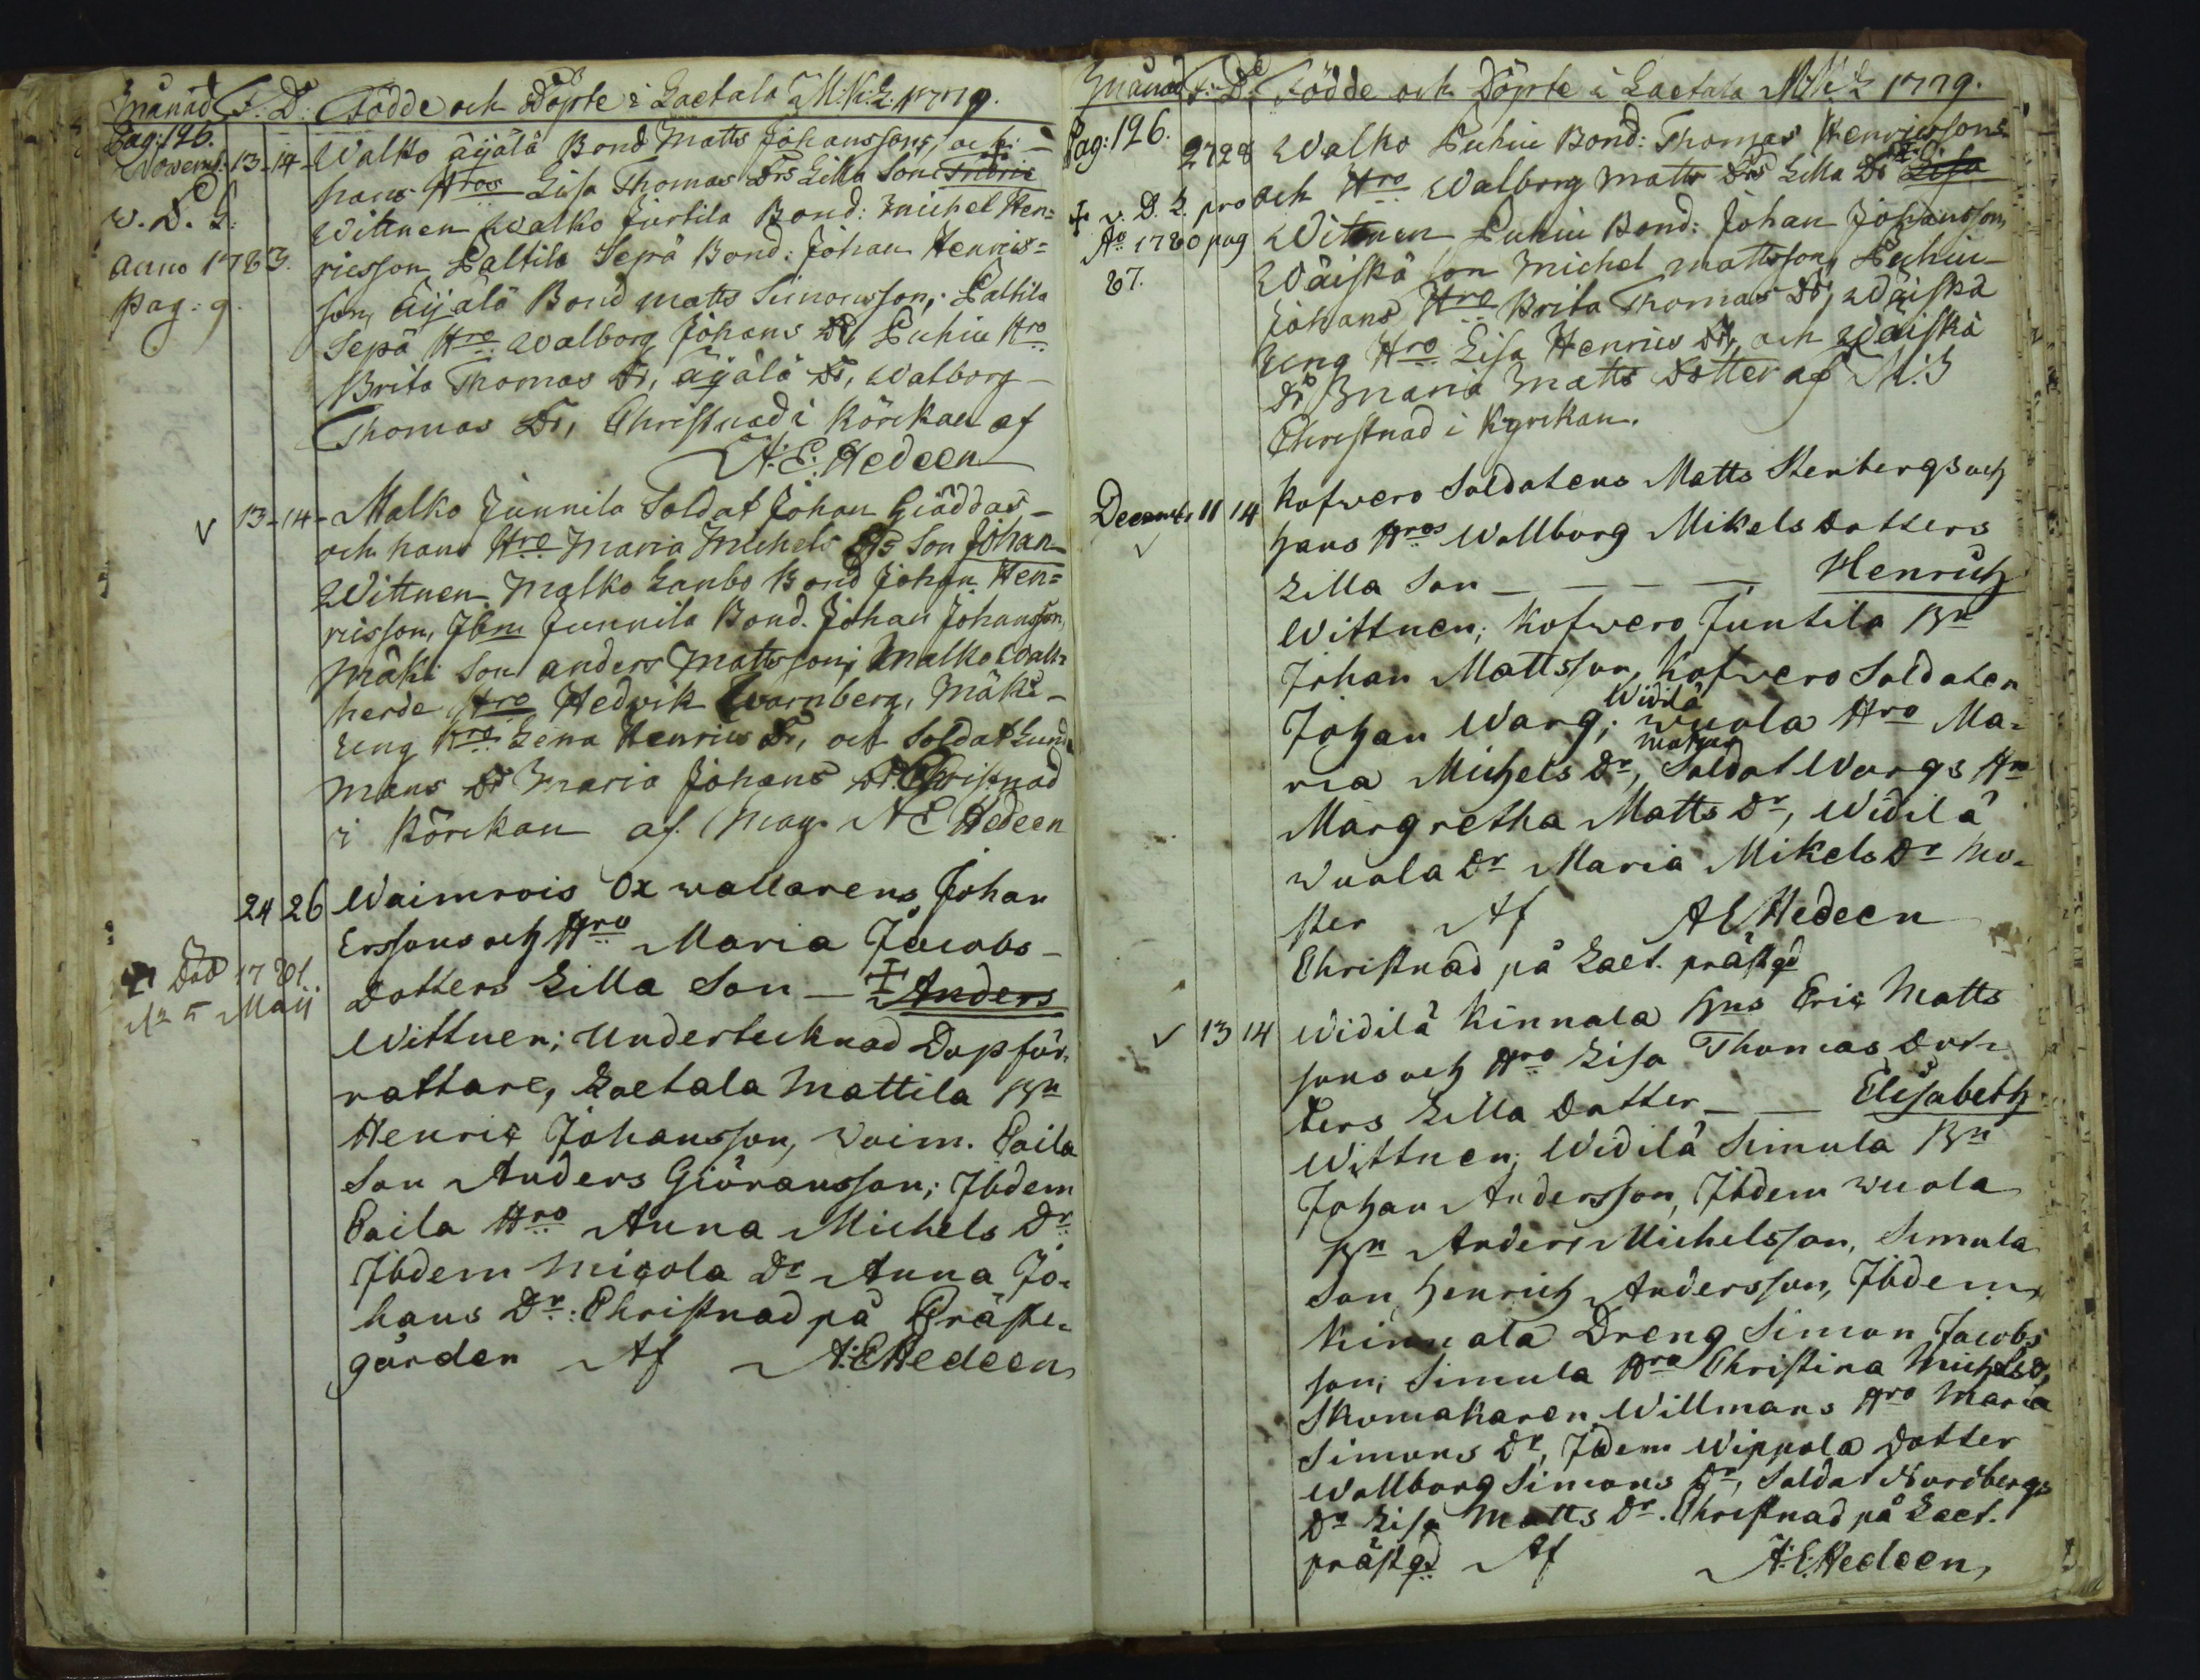 Månad F. D. Födde och Döpte i Laetala M: K: L: 1779.
Pag: 126.
Novemb: 13-14- Walko äÿälä Bond Matts Johanssons, och
hans Hros Lisa Thomas Drs Lilla Son Eric
v. D. L: Wittnen Walko Juttila Bond: Michel Hen=
anno 1783. ricsson, Laltila Sepä Bond: Johan Henrics=
pag: 9. son, Äÿälä Bond Matts Simonsson, Laltila
Sepä Hro: Walborg Johans Dr, Luhiu Hro
Brita Thomas Dr, äÿälä Dr, Walborg -
Thomas Dr, Christnad i Körckan af
A: E: Hedeen
√ 13-14- Malko Junnila Soldat Johan Giäddas -
och hans Hro Maria Michels Drs Son Johan
Wittnen Malko Lanbo Bond Johan Hen=
ricsson, Jbm Junnila Bond. Johan Johansson,
Mäki Son Anders Mattsson; Malko Vall=
herde Hro Hedvik Warnberg, Mäki -
Eeng Hro Lena Henrics Dr, och Soldat Lund
mans Dr Maria Johans Dr. Christnad
i Körckan af. Mag. A E Hedeen
24 26 Waimrois Oxwallarens Johan
Erssons och Hro Maria Jacobs -
† död 1781 Dotters Lilla Son — ‡ Anders
d. 5 Maÿ
Wittnen; Undertecknad Dopför=
rättare, Laetala Mattila Bn
Henric Johansson, Waim. Paila
Son Anders Giöransson; Jbdem
Paila Hro Anna Michels Dr
Jbdem Micola Dr Anna Jo=
hans Dr: Christnad på Präste=
gården Af A: E Hedeen
Månad F: D. Födde och Döpte i Laetala M: K: L: 1779.
Pag: 126. 27 28 Walko Luhiu Bond: Thomas Henricssons
‡ v. D. L. pro och Hro Walborg Matts Drs Lilla Dr Lisa
Ao 1780 pag Wittnen Luhiu Bond: Johan Johansson,
87. Wäiskä Son Michel Mattsson, Luhiu
Johans Hro Brita Thomas Dr, Wäiskä
Eeng Hro Lisa Henrics Dr, och Wäiskä
Dr Maria Matts Dotter af M: S
Christnad i Kyrckan.
Decemb, 11 14 Kofwero Soldatens Matts Stenbergs och
√ hans Hros Wallborg Mikels Dotters
Lilla Son — — — — Henrich
Wittnen; Kofwero Juntila Bn
Johan Mattsson, Kofwero Soldaten
Widilä
Johan Warg; Wuola Hro Ma=
ria Michels Dr, Soldat Wargs Hro
Margretha Matts Dr, Widilä
Wuola Dr Maria Mikels Dr Mo=
ster Af A E Hedeen
Christnad på Laet. prästgd
√ 13 14 Widilä Kinnala Bns Eric Matts
sons och Hro Lisa Thomas Dot=
ters Lilla Dotter — — Elisabeth
Wittnen; Widilä Simula Bn
Johan Andersson, Jbdem Wuola
Bn Anders Michelsson, Simula
Son Henrich Andersson, Jbdem
Kinnala Dreng Simon Jacobs
son; Simula Hro Christina Michels D,
Skomakaren Willmans Hro Maria
Simons Dr, Jbdem Wippola Dotter
Wallborg Simons Dr, Soldat Nordbergs
Dr Lisa Matts Dr. Christnad på Laet.
prästgd Af A: E: Hedeen,